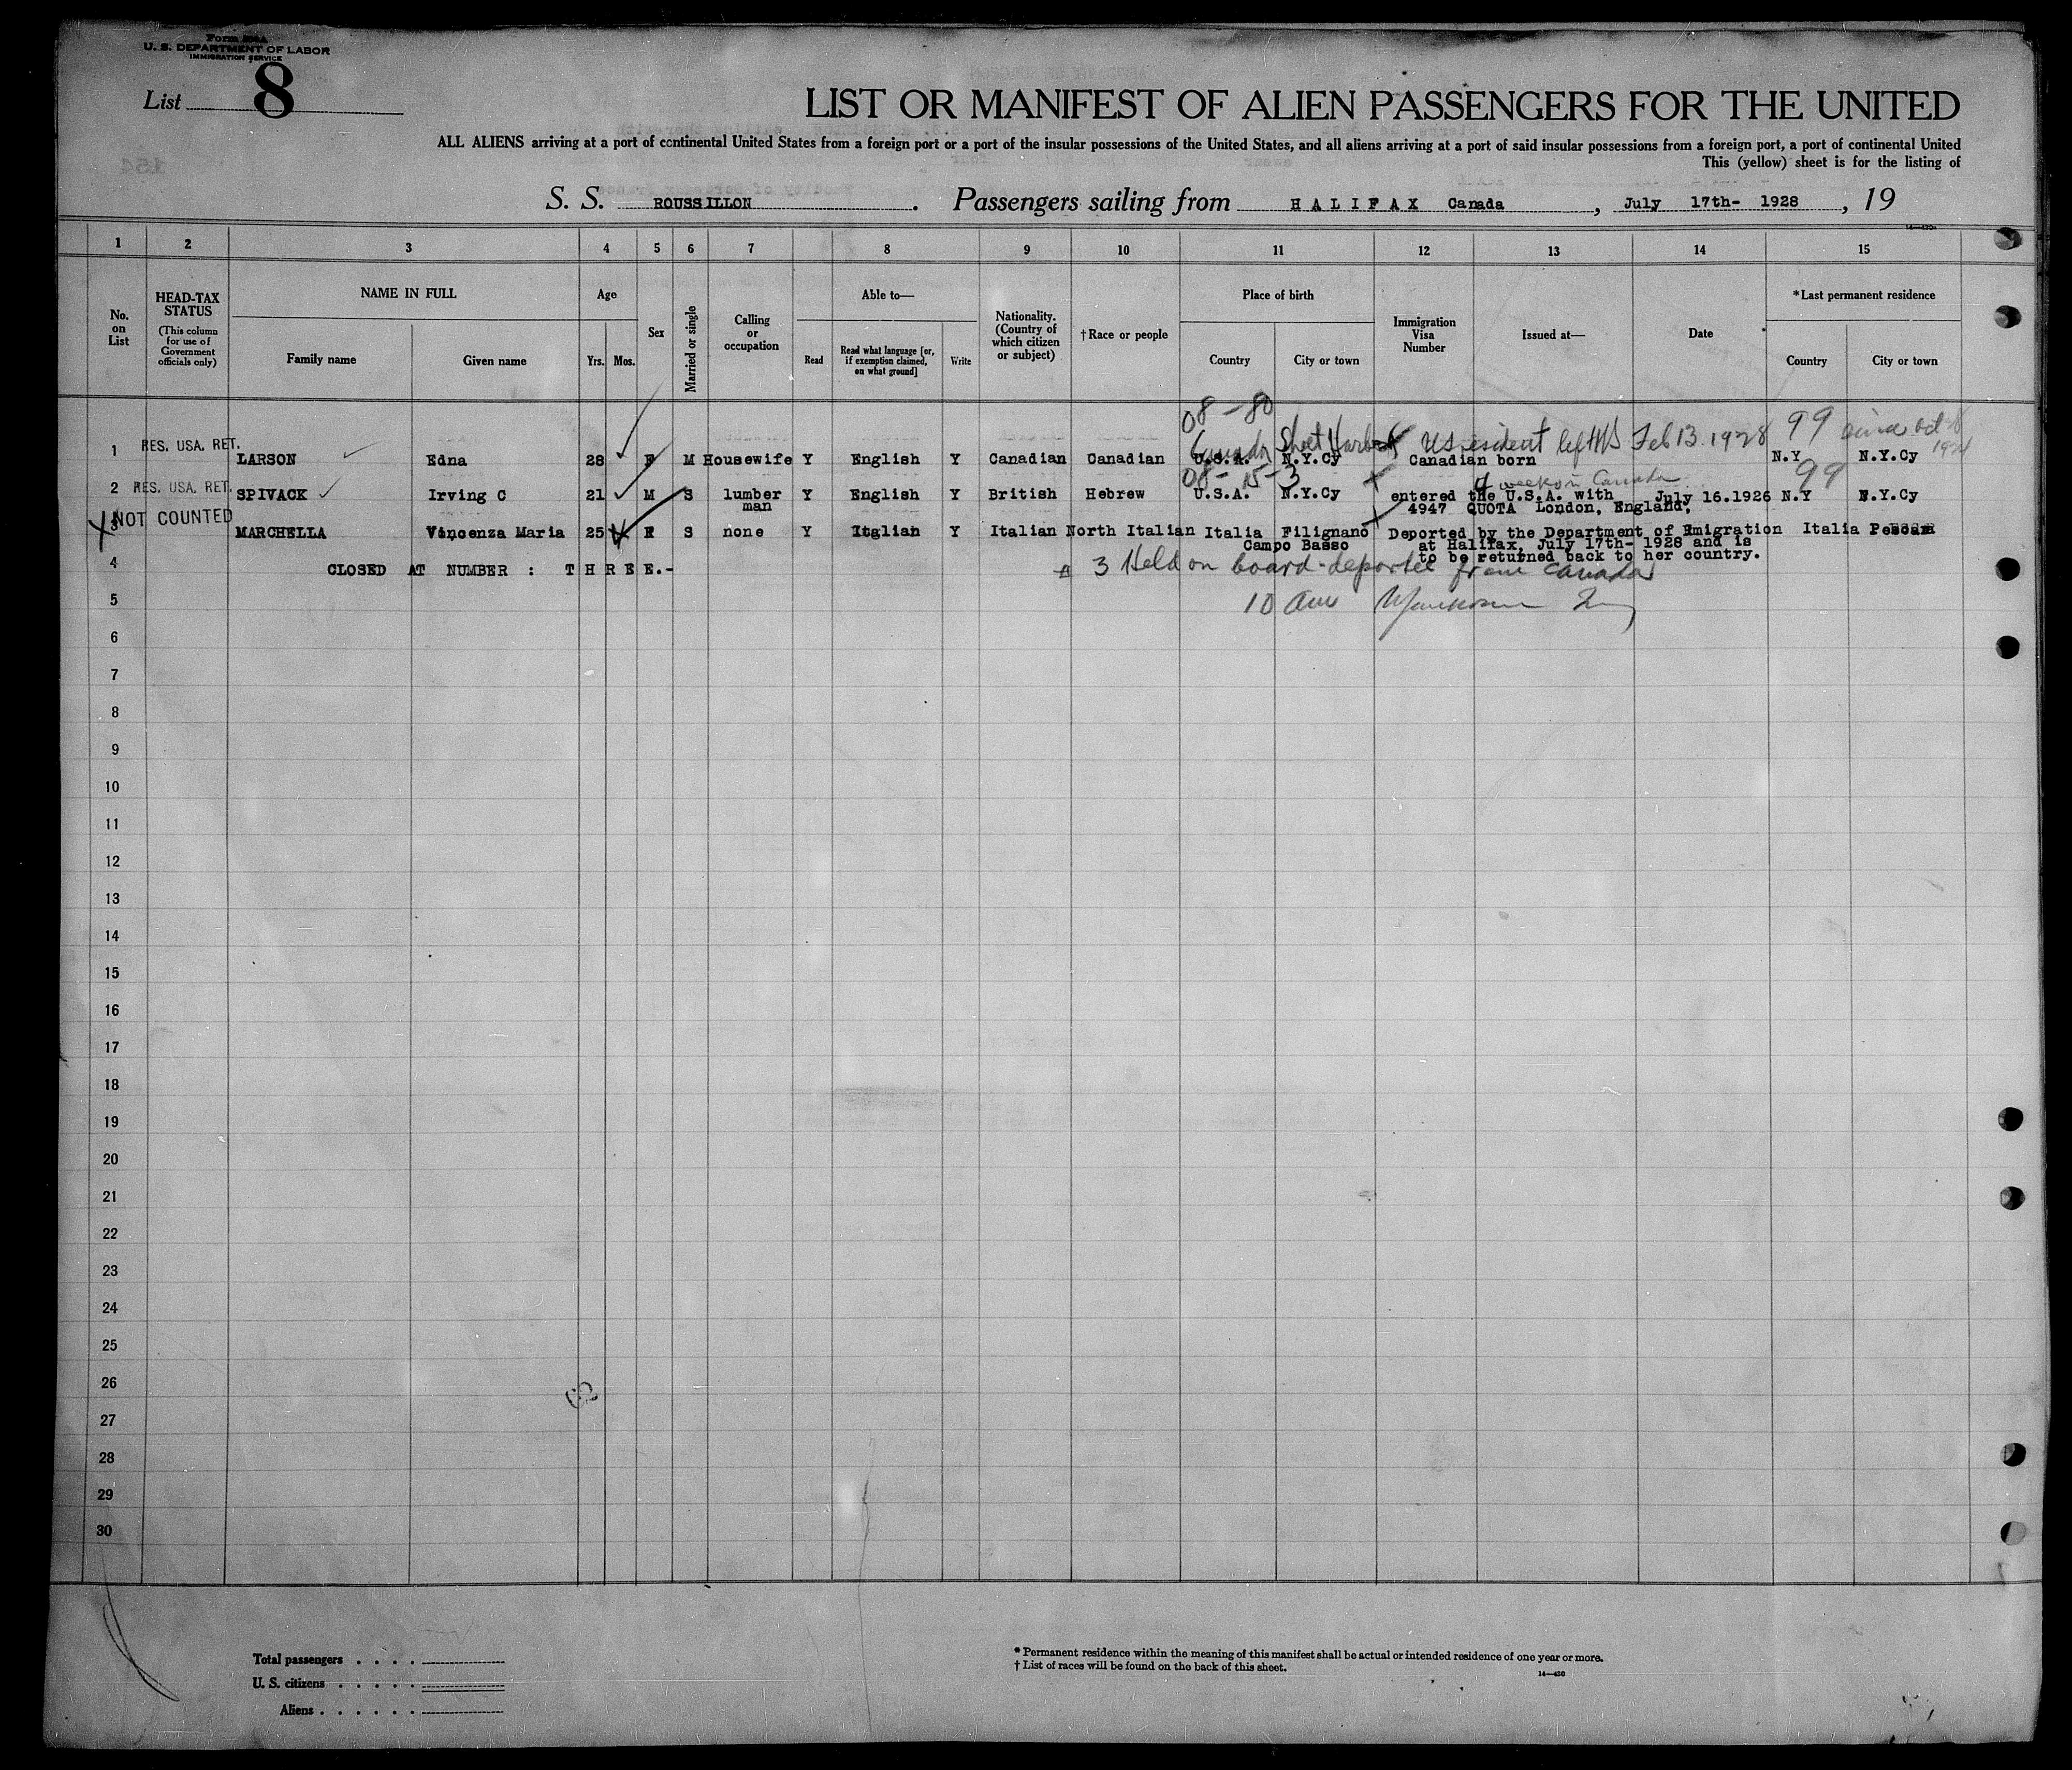 Form 500A
U. S. DEPARTMENT OF LABOR
IMMIGRATION SERVICE
List 8
LIST OR MANIFEST OF ALIEN PASSENGERS FOR THE UNITED
ALL ALIENS arriving at a port of continental United States from a foreign port or a port of the insular possessions of the United States, and all aliens arriving at a port of said insular possessions from a foreign port, a port of continental United
This (yellow) sheet is for the listing of
S. S. ROUSSILLON . Passengers sailing from HALIFAX Canada , July 17th- 1928 , 19
1 2 3 4 5 6 7 8 9 10 11 12 13 14 15
No. on List
HEAD-TAX STATUS
(This column for use of Government officials only)
NAME IN FULL
Family name Given name
Age
Yrs. Mos.
Sex
Married or single
Calling or occupation
Able to—
Read
Read what language [or, if exemption claimed, on what ground]
Write
Nationality. (Country of which citizen or subject)
†Race or people
Place of birth
Country City or town
Immigration Visa Number
Issued at—
Date
*Last permanent residence
Country City or town
08-80
Canada Sheet Harbor US resident left US Feb 13 1928 99 since Oct 1924
1 RES. USA. RET. LARSON Edna 28 F M Housewife Y English Y Canadian Canadian U.S.A. N.Y.Cy Canadian born N.Y N.Y.Cy
08-15-3 weeks in Canada 99
2 RES. USA. RET. SPIVACK Irving C 21 M S lumber man Y English Y British Hebrew U.S.A. N.Y.Cy entered the U.S.A. with July 16.1926 N.Y N.Y.Cy
4947 QUOTA London, England,
3 NOT COUNTED MARCHELLA Vincenza Maria 25 F S none Y Italian Y Italian North Italian Italia Filignano Deported by the Department of Emigration Italia
Campo Basso at Halifax, July 17th- 1928 and is
to be returned back to her country.
4 CLOSED AT NUMBER : THREE.-
3 Held on board-deported from Canada
5 10 am
6
7
8
9
10
11
12
13
14
15
16
17
18
19
20
21
22
23
24
25
26
27
28
29
30
Total passengers . . . .
U. S. citizens . . . . .
Aliens . . . . . .
* Permanent residence within the meaning of this manifest shall be actual or intended residence of one year or more.
† List of races will be found on the back of this sheet.
14—420